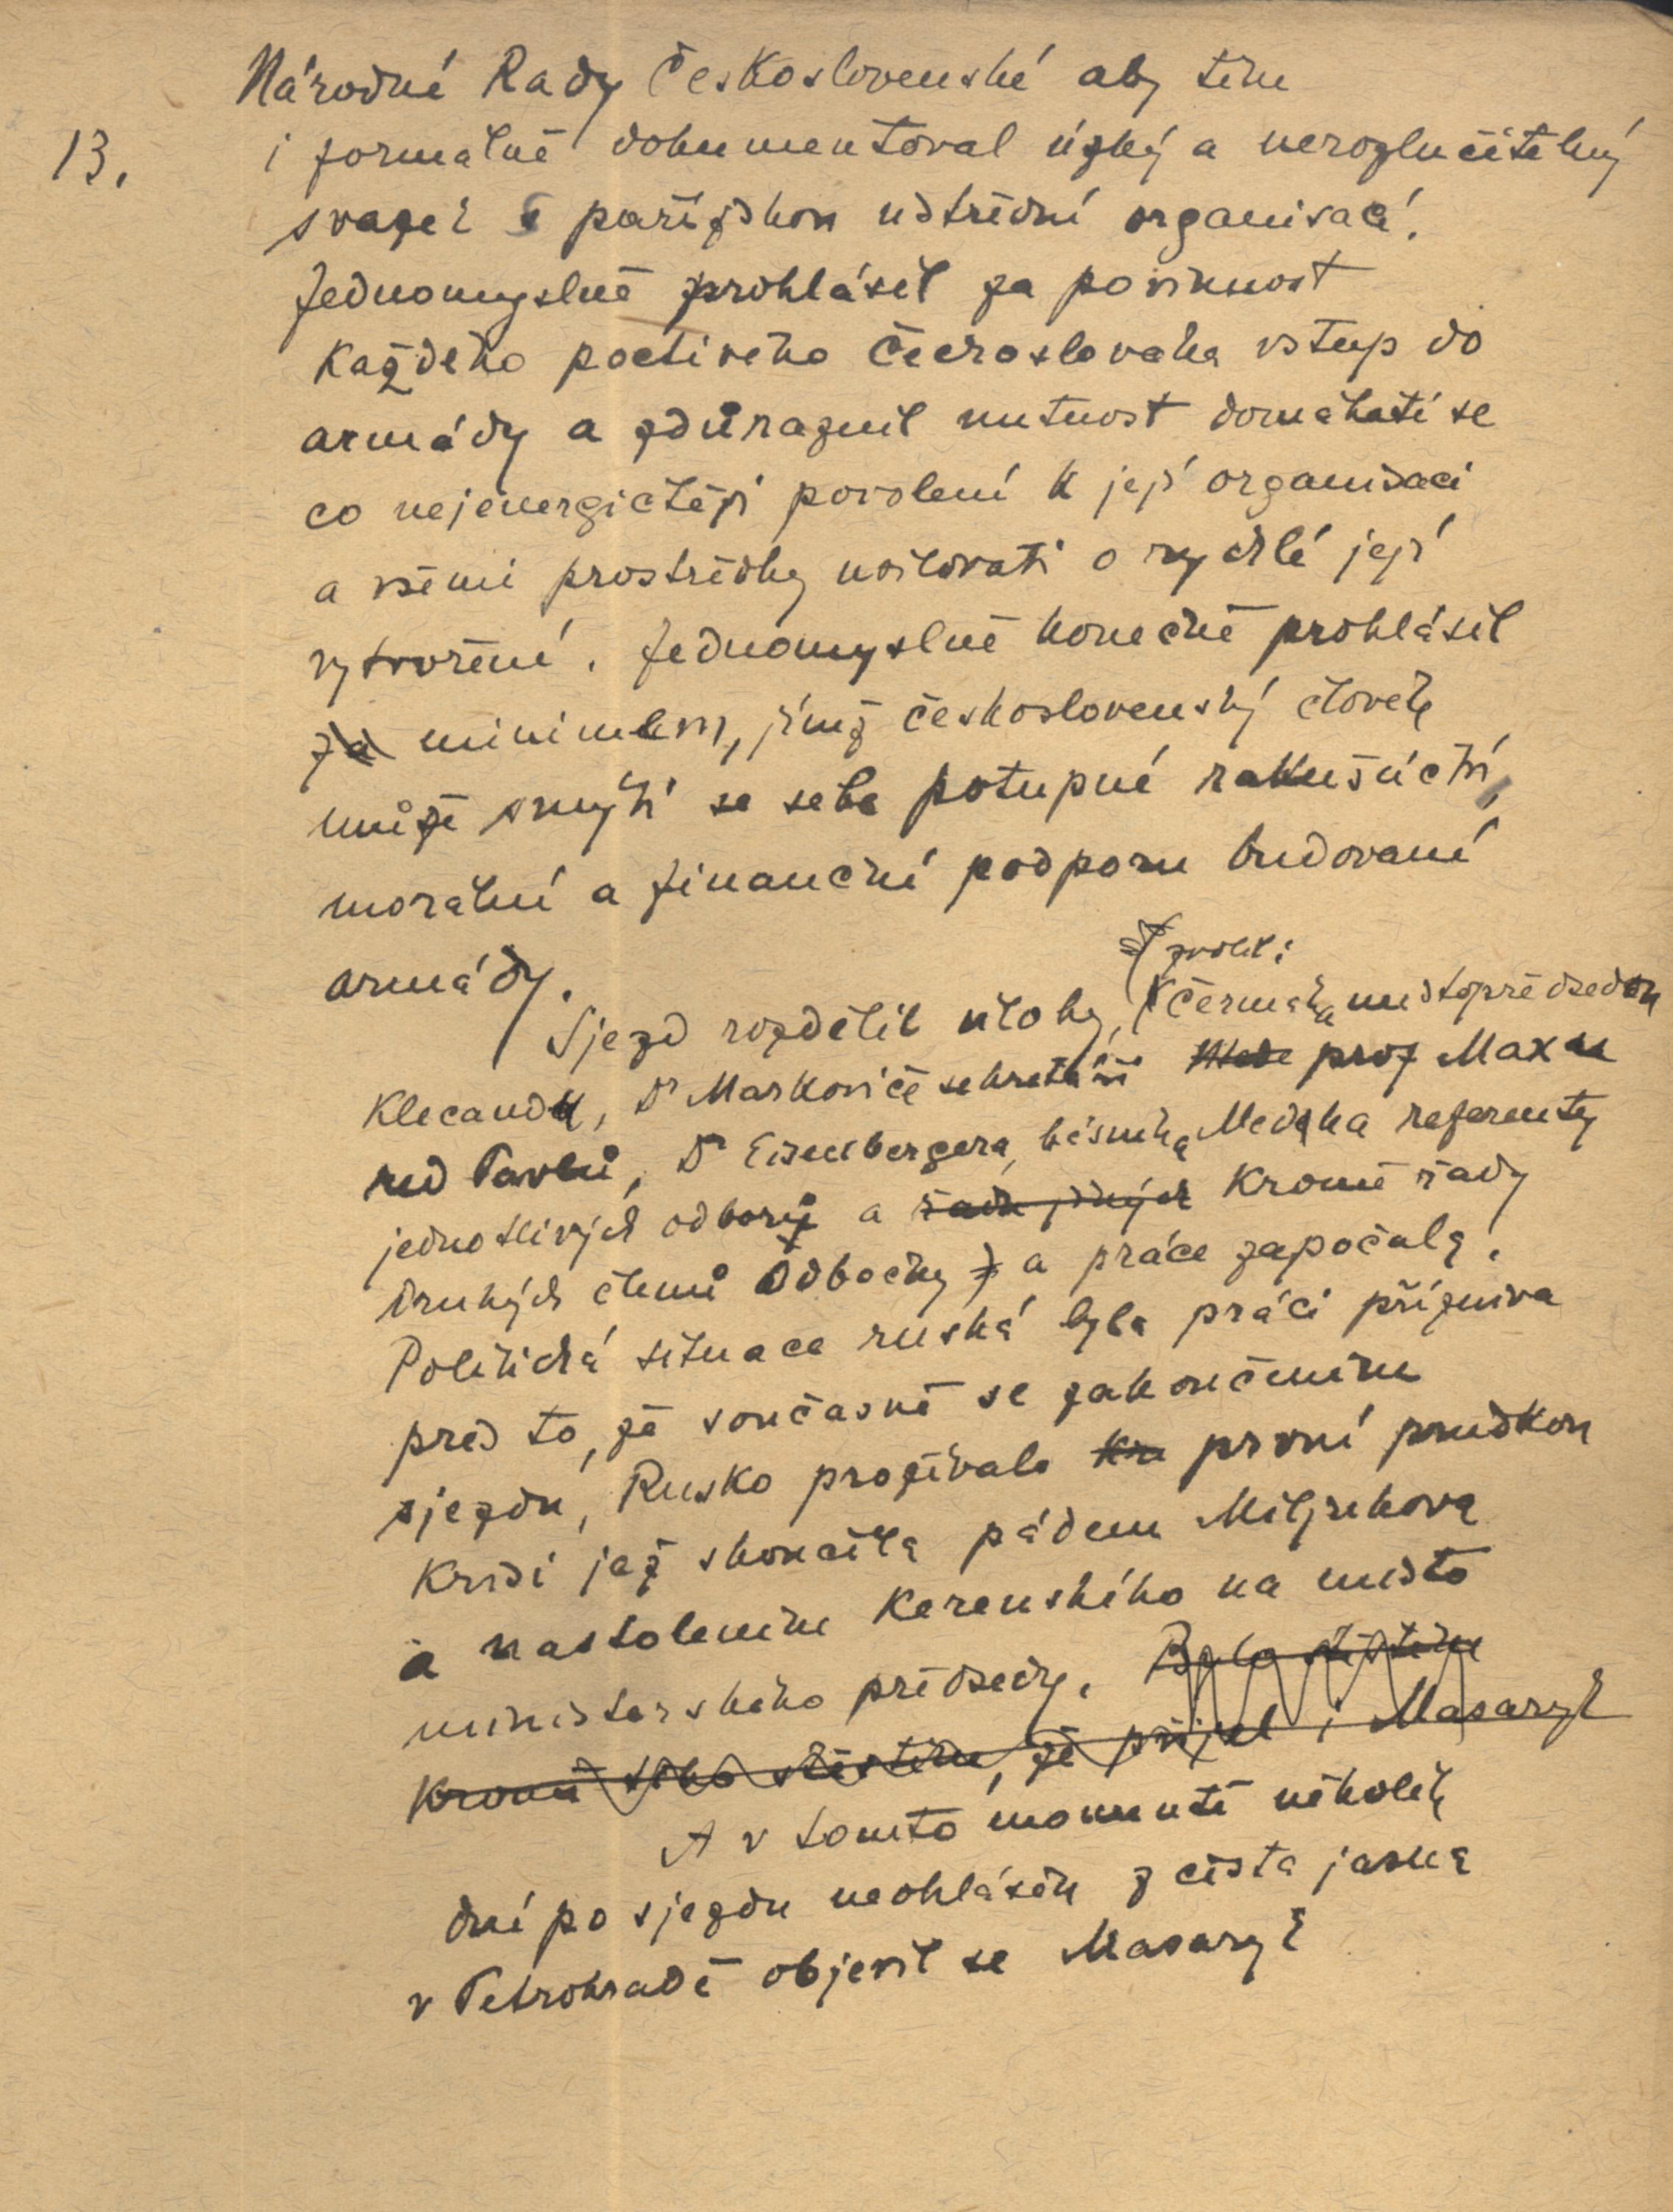 Národní Rady Československé aby tím
13. i formálně dokumentoval úzký a nerozlučitelný
svazek s pařížskou ustřední organisací.
Jednomyslně prohlásil za povinnost
každého poctivého Čechoslováka vstup do
armády a zdůraznil nutnost domáhati se
co nejenergičtěji povolení k její organisaci
a všemi prostředky usilovati o rychlé její
vytvoření. Jednomyslně konečně prohlásil
za minimem, jímž československý člověk
může smýti se sebe potupné rakušáctví,
morální a finanční podporu budované
armády.
zvolil:
Sjezd rozdělil úlohy, Čermáka místopředsedou
Klecandu, Dr Markoviče sekretáři prof Maxu
red Pavlů, Dr Eisenbergera, básníka Medka referenty
jednotlivých odborů a řadu jiných kromě řady
druhých členů Odbočky a práce započala.
Politická situace ruská byla práci přízniva
před to, že současně se zakončením
sjezdu, Rusko prožívalo kri první prudkou
krisi jež skončila pádem Miljukova
a nastolením Kerenského na místo
ministerského předsedy. Bylo štěstím
Kromě toho štěstím, že přijel i Masaryk
A v tomto momentě několik
dní po sjezdu neohlášen z čista jasna
v Petrohradě objevil se Masaryk